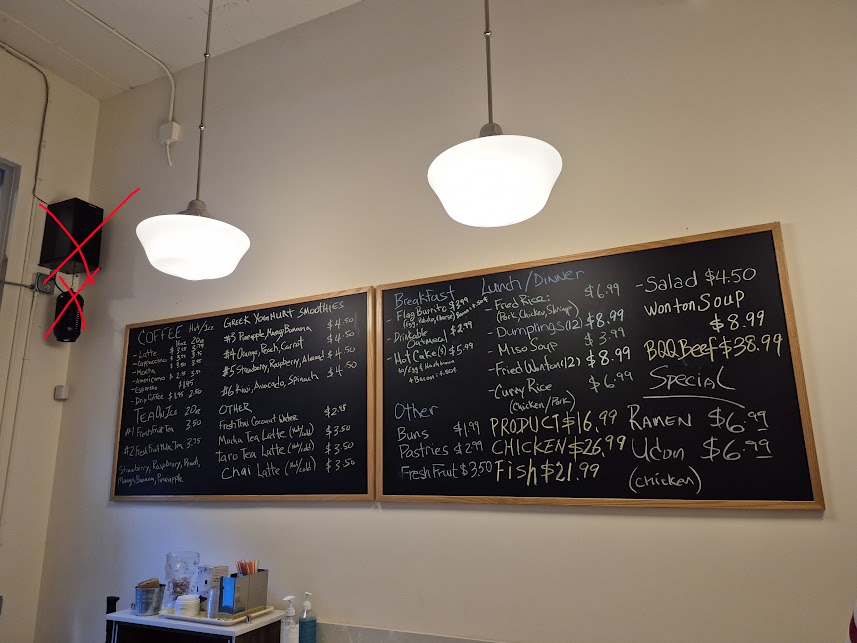 COFFEE Hot/Ice
12oz 20oz
- Latte $3.25 3.75
- Cappuccino $ 3.25 3.75
- Mocha $ 3.50
- Americano $ 2.75
- Espresso $1.95
- Drip Coffee $1.95 2.50
TEA ON ICE 20oz
#1 Fresh Fruit Tea 3.50
#2 Fresh Fruit Milk Tea 3.75
Strawberry, Raspberry, Peach,
Mango, Banana, Pineapple
GREEK YOGHURT SMOOTHIES
#3 Pineapple, Mango, Banana $ 4.50
#4 Orange, Peach, Carrot $ 4.50
#5 Strawberry, Raspberry, Almond $ 4.50
#6 Kiwi, Avocado, Spinach $ 4.50
OTHER
Fresh Thai Coconut Water $2.95
Matcha Tea Latte (Hot/Cold) $ 3.50
Taro Tea Latte (Hot/Cold) $ 3.50
Chai Latte (Hot/Cold) $ 3.50
Breakfast
- Flag burrito $3.99
(Egg, Potato, Cheese) Bacon +.50¢
- Drinkable
Oatmeal $2.99
- Hot Cake(s) $5.99
w/ Egg & Hashbrown
+ Bacon +.50¢
Other
Buns $1.99
Pastries $2.99
Fresh Fruit $3.50
Lunch/Dinner
- Fried Rice: $6.99
(Pork, Chicken, Shrimp)
- Dumplings (12) $8.99
- Miso Soup $ 3.99
- Fried Wonton (12) $8.99
- Curry Rice $6.99
(Chicken/Pork)
PRODUCT $16.99
CHICKEN $26.99
Fish $21.99
- Salad $4.50
Wonton SOUP
$8.99
BQQ Beef $38.99
SPECIAL
RAMEN $6.99
Udon $6.99
(chicken)